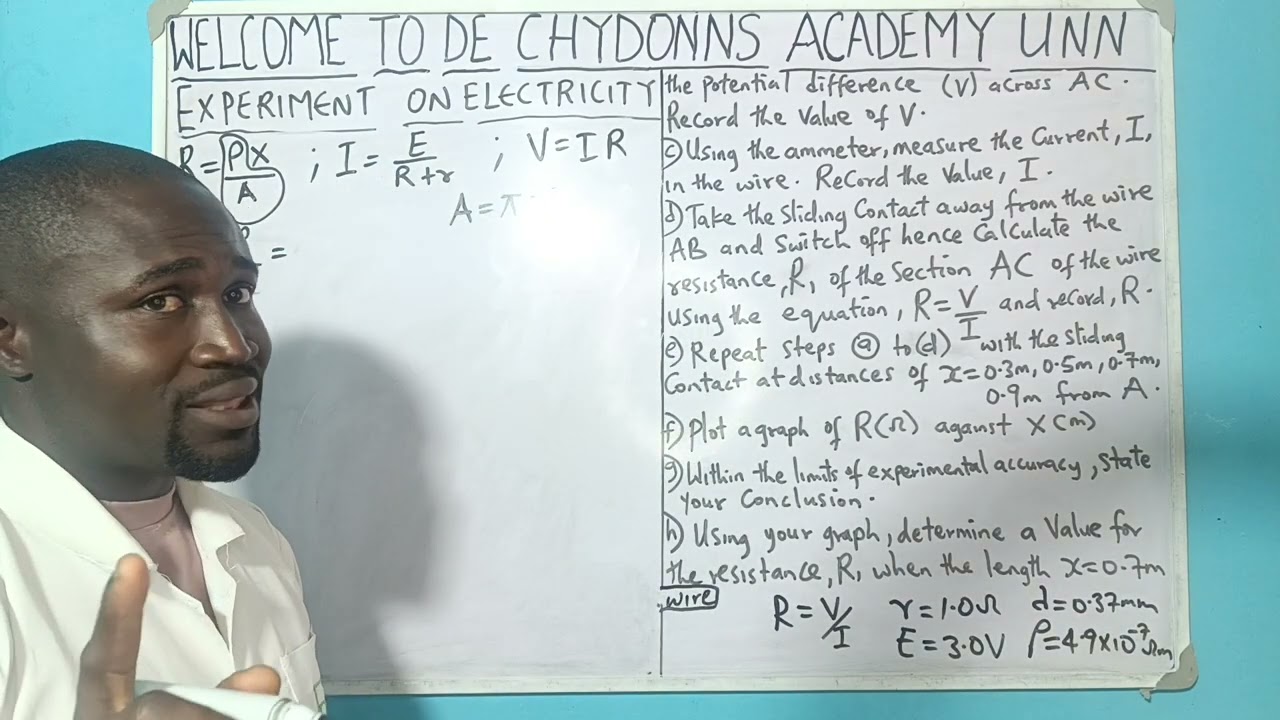 WELCOME TO DE CHYDONNS ACADEMY UNN
EXPERIMENT ON ELECTRICITY
R = ρx/A ; I = E/R+r ; V = IR
A = π
=
the potential difference (V) across AC.
Record the value of V.
c) Using the ammeter, measure the Current, I,
in the wire. Record the Value, I.
d) Take the Sliding Contact away from the wire
AB and Switch off hence Calculate the
resistance, R, of the Section AC of the wire
using the equation, R = V/I and record, R.
e) Repeat steps (a) to (d) with the sliding
Contact at distances of x = 0.3m, 0.5m, 0.7m,
0.9m from A.
f) Plot a graph of R(Ω) against X(m)
g) Within the limits of experimental accuracy, state
your Conclusion.
h) Using your graph, determine a Value for
the resistance, R, when the length x = 0.7m
wire
R = V/I r = 1.0Ω d = 0.37mm
E = 3.0V ρ = 4.9×10⁻⁷Ωm